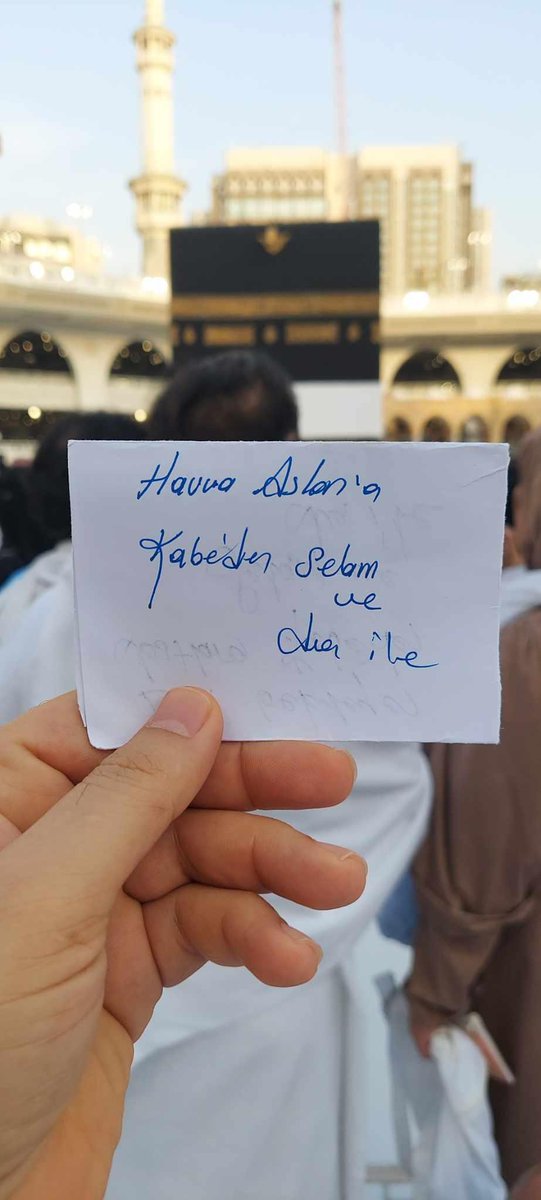 Havva Aslan'a
Kabe'den Selam
ve
dua ile